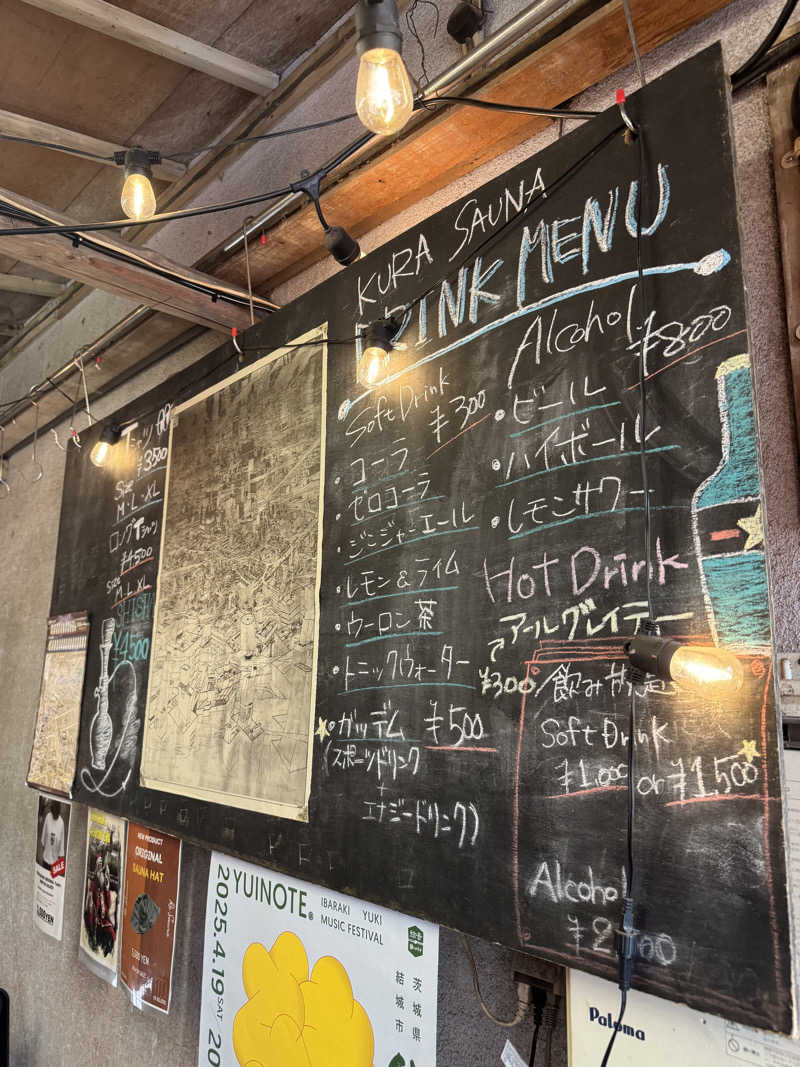 KURA SAUNA
DRINK MENU
Soft Drink
¥300
・コーラ
・ゼロコーラ
・ジンジャーエール
・レモン&ライム
・ウーロン茶
・トニックウォーター
・ガッデム ¥500
(スポーツドリンク
+
エナジードリンク)
Alcohol
¥800
・ビール
・ハイボール
・レモンサワー
Hot Drink
アールグレイティー
¥300
飲み放題
Soft Drink
¥1,000 or ¥1,500
Alcohol
Tシャツ
¥3500
Size
M・L・XL
ロングTシャツ
¥4500
Size
M・L・XL
SHISHA
¥4,500
SALE
NEW PRODUCT
ORIGINAL
SAUNA HAT
YUINOTE®
IBARAKI YUKI
MUSIC FESTIVAL
2025.4.19 SAT
茨城県
結城市
Paloma